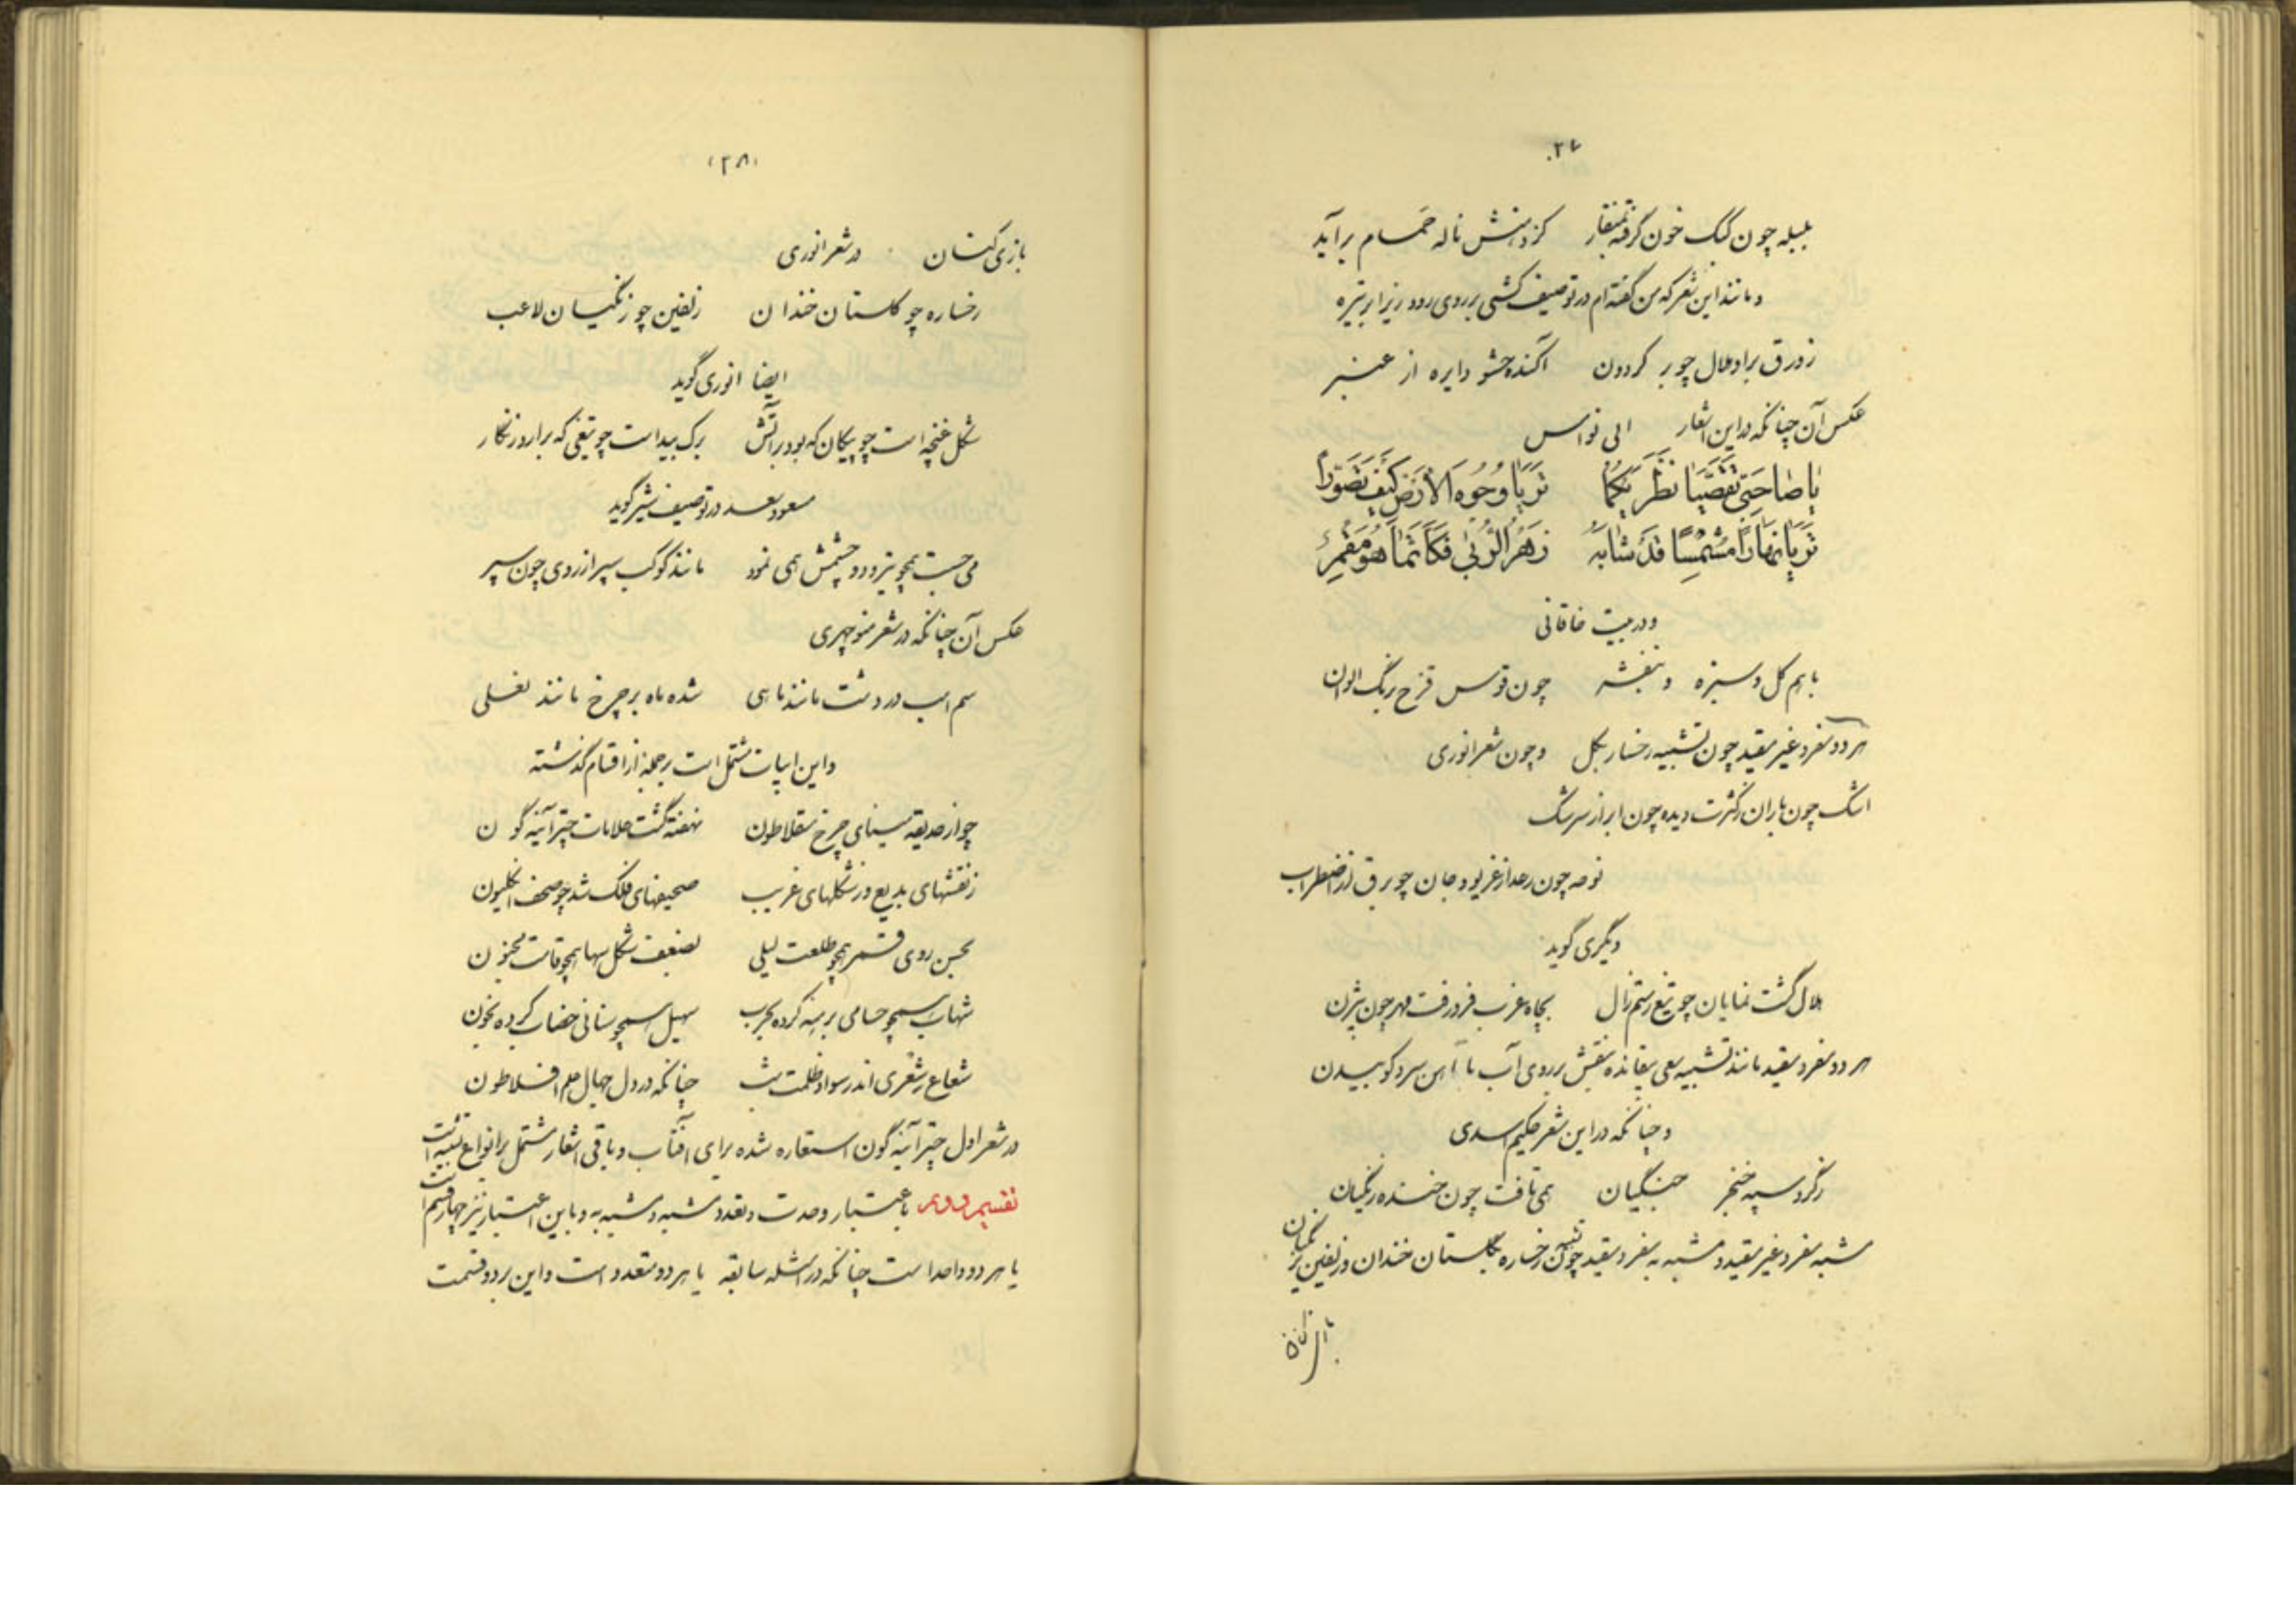 ۲۷
بلبله چون کبک خون گرفته بمنقار کز دهنش ناله حمام برآید
و مانند این شعر که من گفته‌ام در توصیف کشتی بر روی رود زیر ابر تیره
زورق بر او هلال چو بر گردون آکنده حشو دایره از عنبر
عکس آن چنانکه در این اشعار ابی نواس
یا صاحبی تقصیا نظریکما تریا وجوه الارض کیف تصورا
تریا نهارا مشمسا قد شابه زهر الربی فکأنما هو مقمر
و در بیت خاقانی
باهم گل و سبزه و بنفشه چون قوس قزح برنگ الوان
هر دو مفرد غیر مقید چون تشبیه رخسار بگل و چون شعر انوری
اشک چون باران ز کثرت دیده چون ابر از سرشک
نوحه چون رعد از غریو و جان چو برق از اضطراب
دیگری گوید
هلال گشت نمایان چو تیغ رستم زال بچاه غرب فرو رفت مهر چون بیژن
هر دو مفرد مقید مانند تشبیه سعی بیفایده بنقش بر روی آب یا آهن سرد کوبیدن
و چنانکه در این شعر حکیم اسدی
ز گرد سیه خنجر جنگیان همی تافت چون خنده زنگیان
مشبه مفرد غیر مقید و مشبه به مفرد مقید چون تشبیه رخساره بگلستان خندان و زلفین بزنگیان
بازی‌کنان
(۲۸)
بازی کنان در شعر انوری
رخساره چو گلستان خندان زلفین چو زنگیان لاعب
ایضا انوری گوید
شکل غنچه است چو پیکان که بود بر آتش برگ بید است چو تیغی که برآرد زنگار
مسعود سعد در توصیف شیر گوید
می‌جست همچو تیر و دو چشمش همی نمود مانند کوکب سپر از روی چون سپر
عکس آن چنانکه در شعر منوچهری
سم اسب در دشت مانند ماهی شده ماه بر چرخ مانند نعلی
و این ابیات مشتمل است بر جمله از اقسام گذشته
چو از حدیقه مینای چرخ سقلاطون نهفته گشت علامات چتر آینه گون
ز نقشهای بدیع و ز شکلهای غریب صحیفهای فلک شد چو صحف انگلیون
بحسن روی قمر همچو طلعت لیلی بضعف شکل سها همچو قامت مجنون
شهاب همچو حسامی برهنه کرده بحرب سهیل همچو سنانی خضاب کرده بخون
شعاع شعری اندر سواد ظلمت شب چنانکه در دل جهال علم افلاطون
در شعر اول چتر آینه گون استعاره شده برای آفتاب و باقی اشعار مشتمل بر انواع تشبیه است
تقسیم دویم باعتبار وحدت و تعدد مشبه و مشبه به و باین اعتبار نیز چهار قسم است
یا هر دو واحد است چنانکه در امثله سابقه یا هر دو متعدد است و این بر دو قسمت